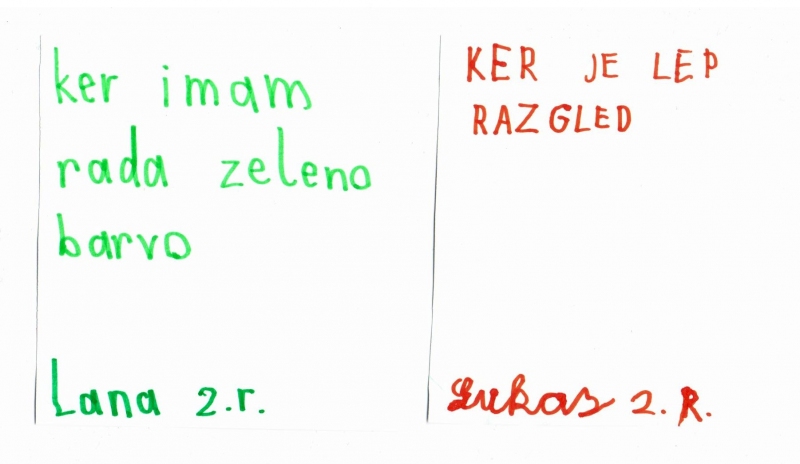 ker imam
rada zeleno
barvo
Lana 2.r.
KER JE LEP
RAZGLED
Lukas 2.R.